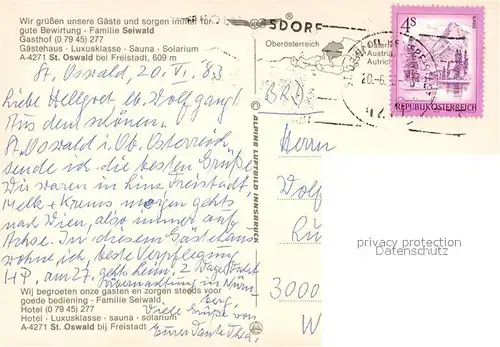 Wir grüßen unsere Gäste und sorgen immer für
gute Bewirtung - Familie Seiwald
Gasthof (0 79 45) 277
Gästehaus - Luxusklasse - Sauna - Solarium
A-4271 St. Oswald bei Freistadt, 609 m
St. Oswald, 20. VI. 83
Liebe Hellgret u. Wolfgang!
Aus dem schönen
St. Oswald i. Ob. Österreich
sende ich die besten Grüße
Wir waren in Linz, Freistadt,
Melk + Krems morgen gehts
nach Wien, also immer auf
Achse. In diesem Gästehaus
wohne ich, beste Verpflegung
HP. am 27. gehts heim, 2 Tage Fahrt
Übernachtung in Nürn-
berg.
Viele Grüße von
Eurer Tante Thea,
Wij begroeten onze gasten en zorgen steeds voor
goede bediening - Familie Seiwald
Hotel (0 79 45) 277
Hotel - Luxusklasse - sauna - solarium
A-4271 St. Oswald bij Freistadt
ALPINE LUFTBILD INNSBRUCK
SDORF
Oberösterreich
Austria
Autriche
20.-6.
4S
REPUBLIK ÖSTERREICH
BRD
Herrn
Wolf
3000
privacy protection
watermark